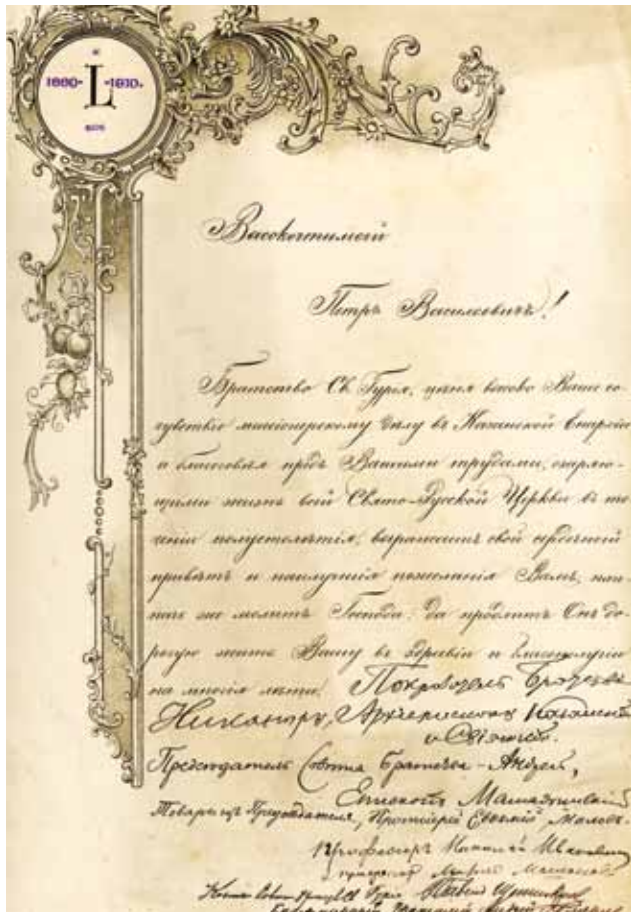 1860- L -1910.
Высокочтимый
Петръ Васильевичъ!
Братство Св. Гурія, цѣня высоко Ваше со-
чувствіе миссіонерскому дѣлу въ Казанской Епархіи
и благоговѣя предъ Вашими трудами, озаряю-
щими жизнь всей Свято-Русской Церкви въ те-
ченіи полустолѣтія, выражаетъ свой сердечный
привѣтъ и наилучшія пожеланія Вамъ,
же молитъ Господа: да продлитъ Онъ до-
рогую жизнь Вашу въ здравіи и благополучіи
на многія лѣта! Покровитель Братства
Никаноръ, Архіепископъ Казанскій
и Свіяжскій.
Предсѣдатель Совѣта Братства - Андрей,
Епископъ Мамадышскій
Товарищъ Предсѣдателя, Протоіерей Евѳимій Маловъ.
Профессоръ